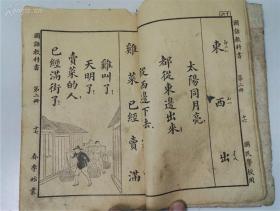 國語教科書
第二冊
國民學校用
東
西
出
太陽同月亮
都從東邊出來
從西邊下去
雞 菜 已 經 賣 滿
雞叫了
天明了
賣菜的人
已經滿街了
國語教科書
第二冊
春季始業